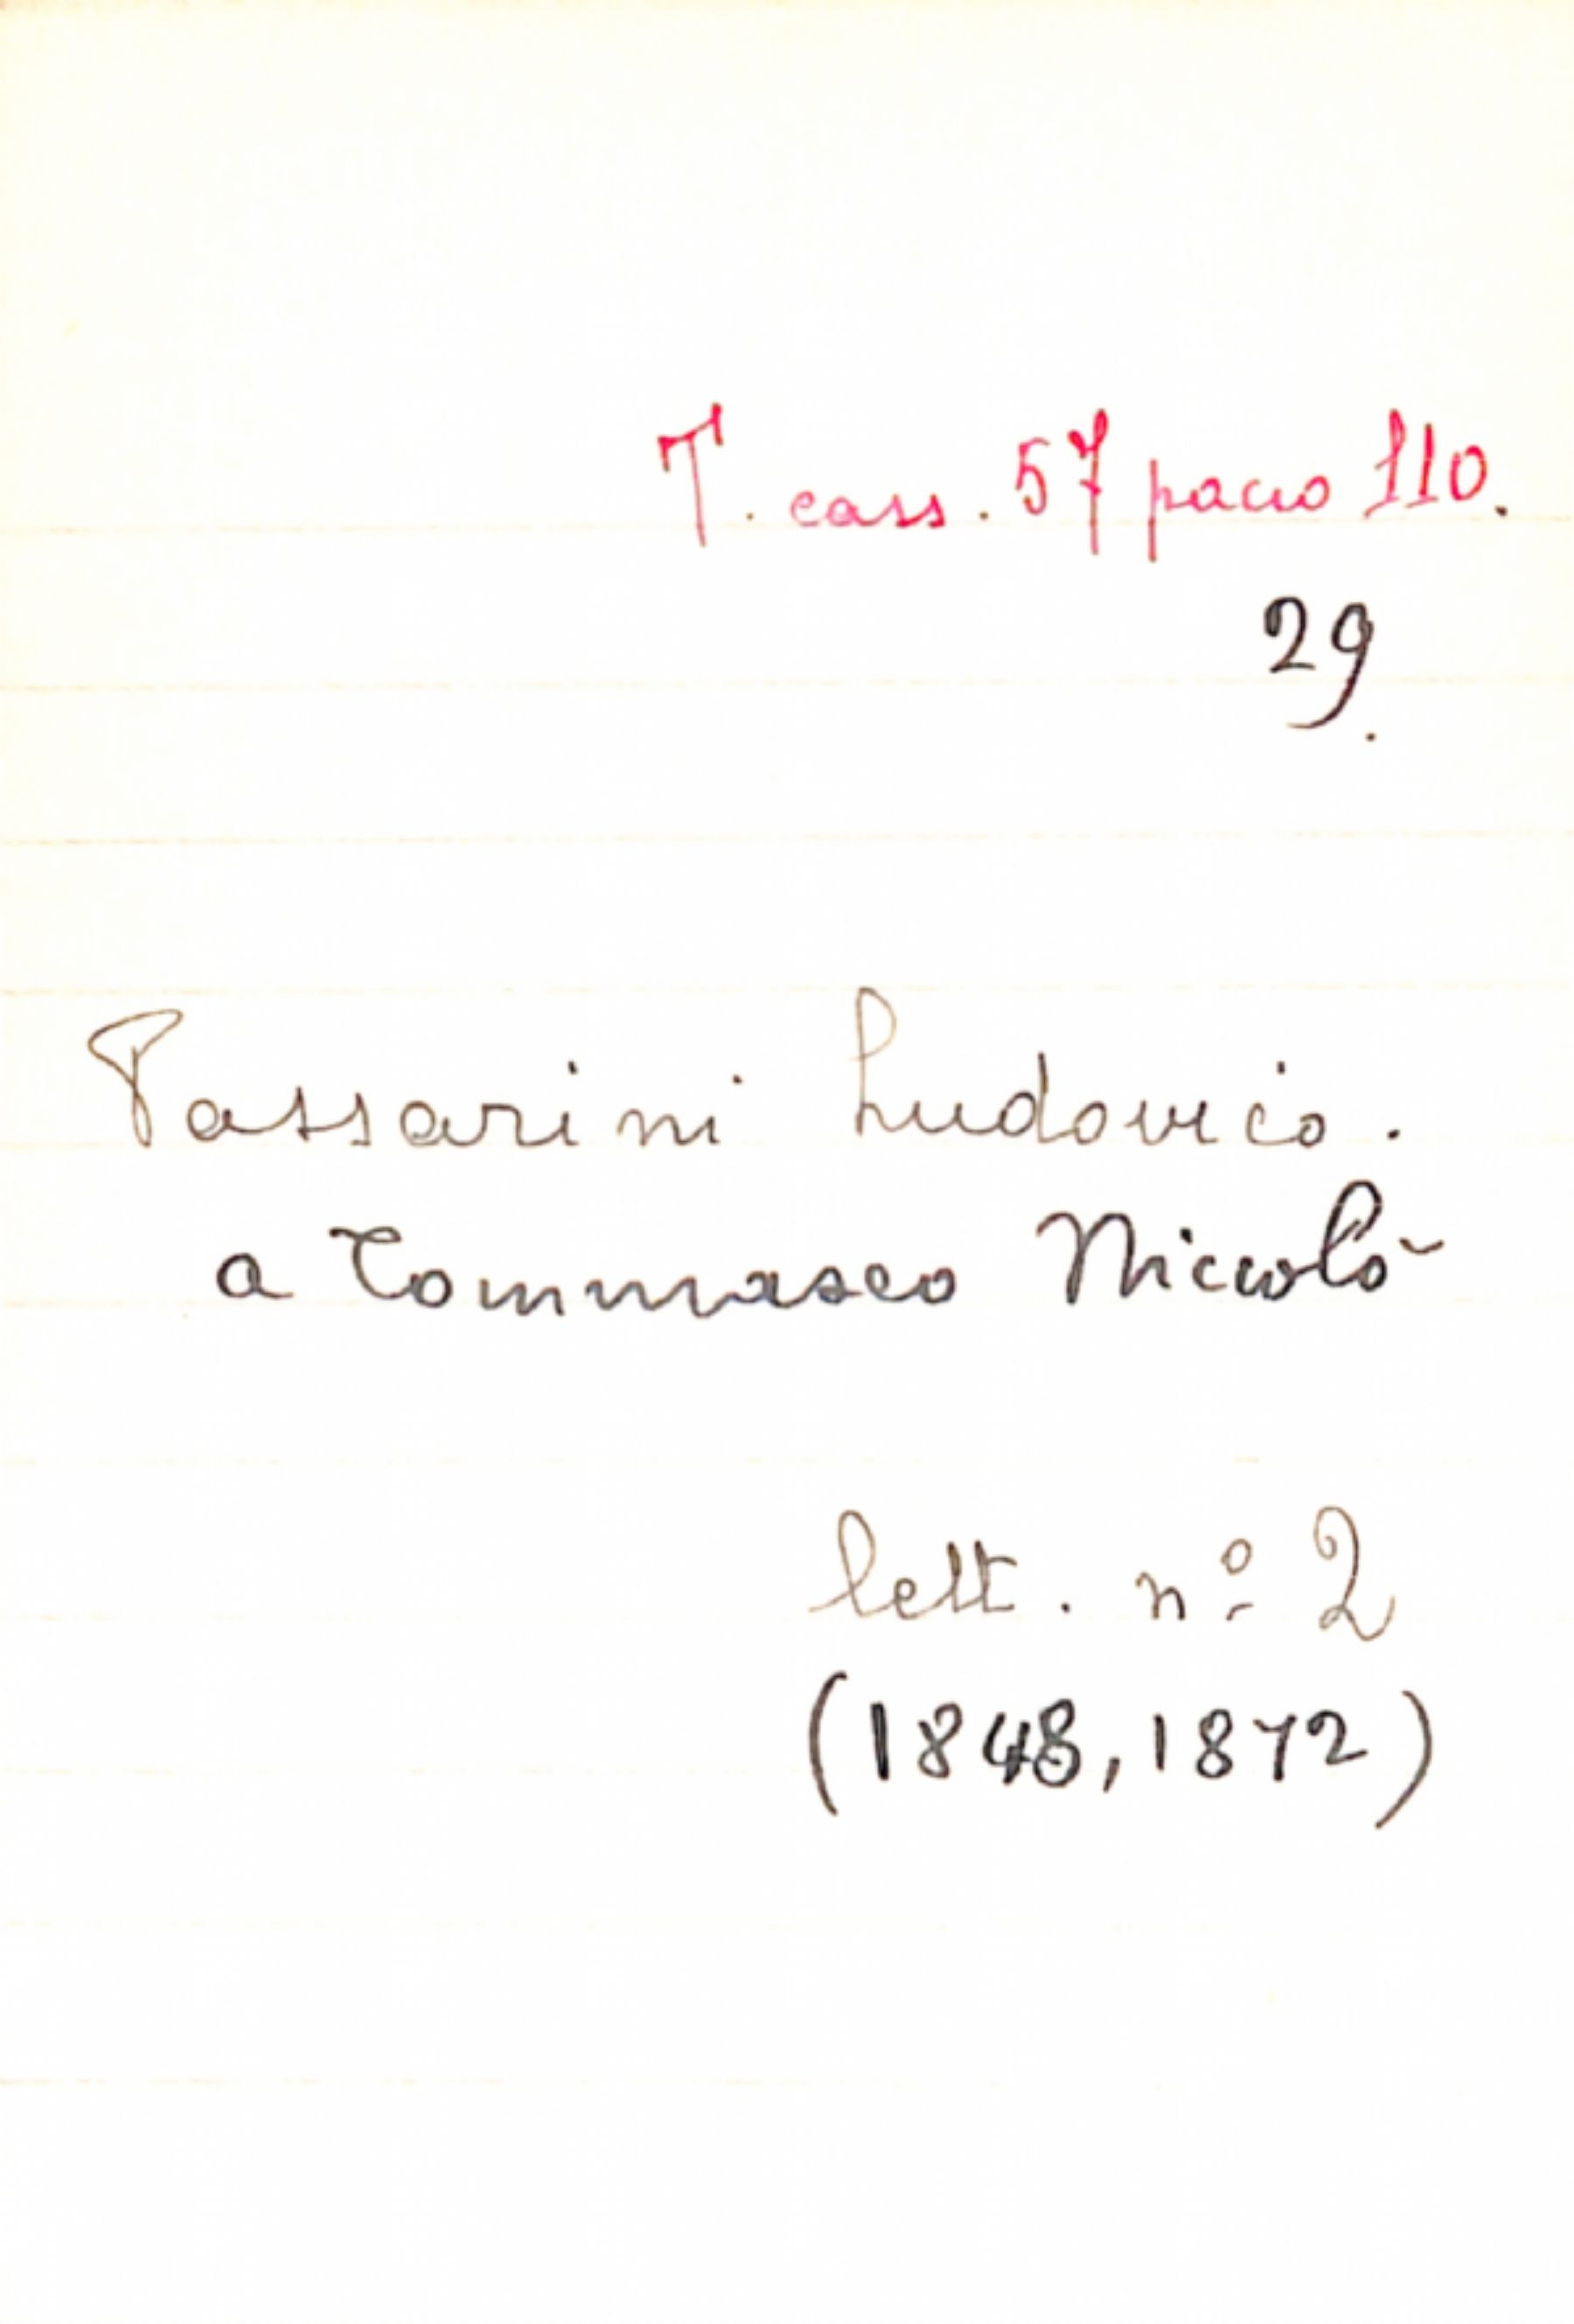 T. cass. 57 pacco 110.
29.
Passarini Ludovico.
a Tommaseo Niccolò
lett. nº 2
(1848, 1872)